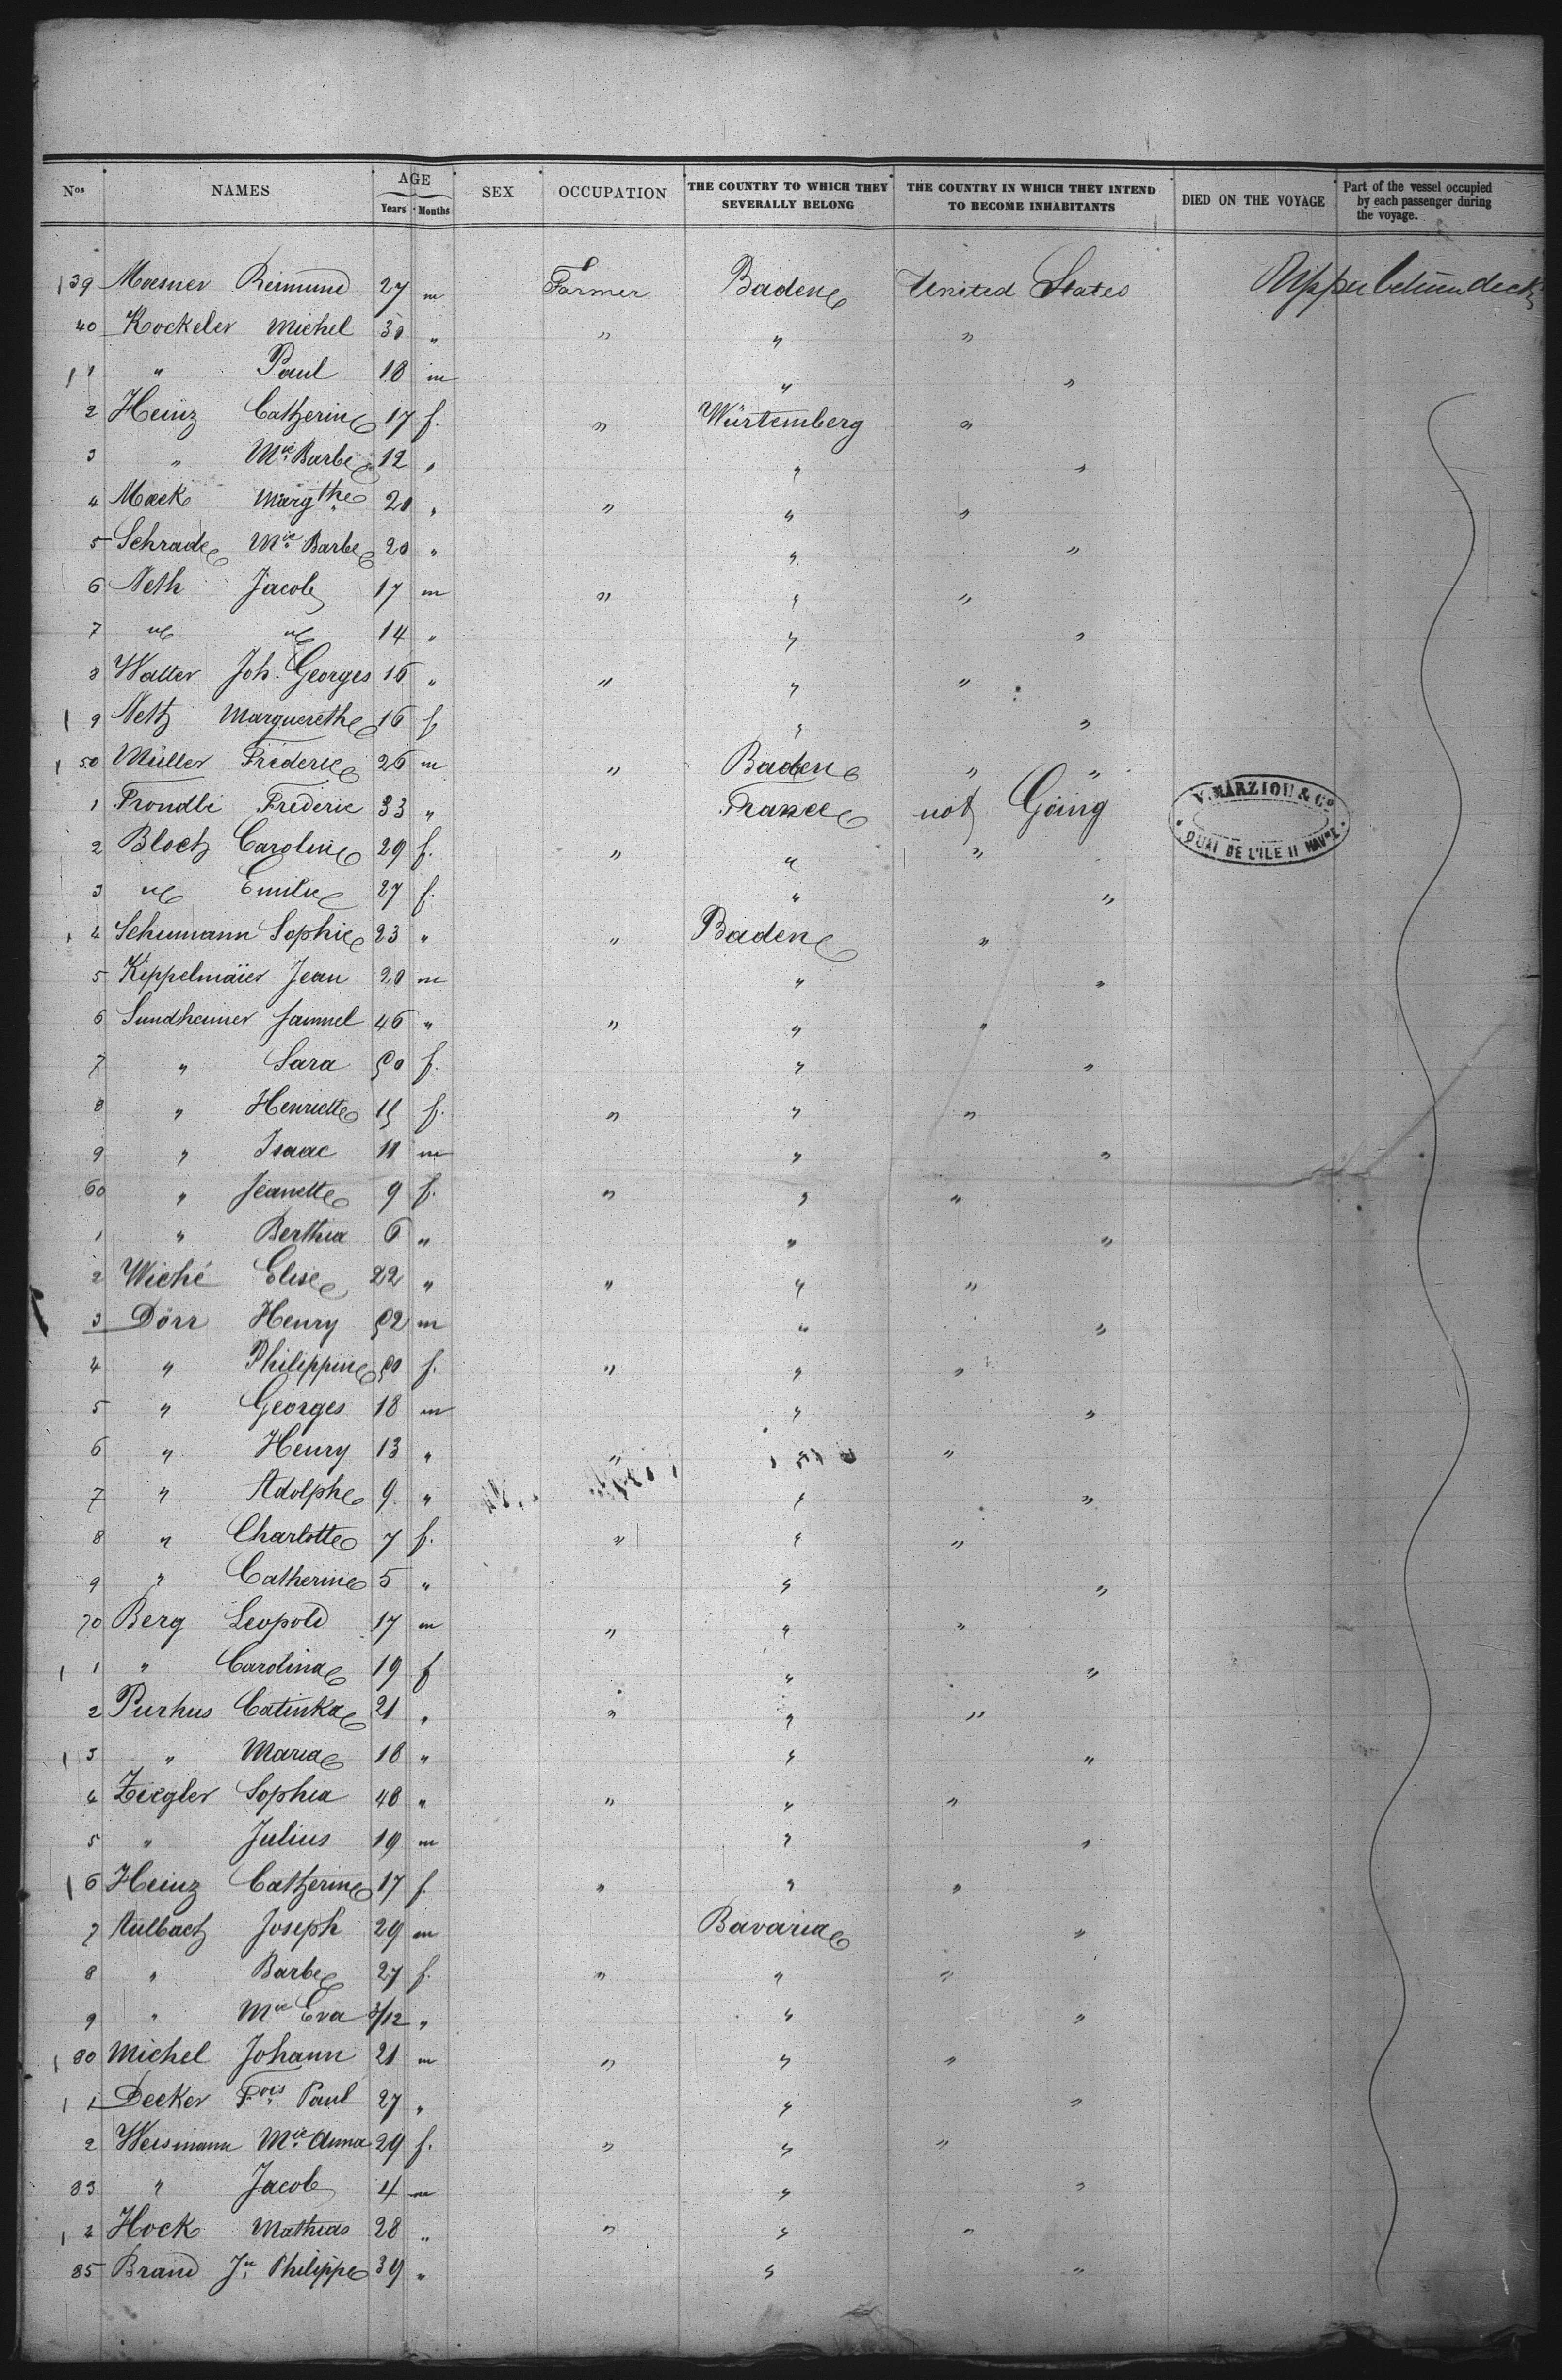 Nos NAMES AGE Years Months SEX OCCUPATION THE COUNTRY TO WHICH THEY SEVERALLY BELONG THE COUNTRY IN WHICH THEY INTEND TO BECOME INHABITANTS DIED ON THE VOYAGE Part of the vessel occupied by each passenger during the voyage.
139 Mæsner Reimund 27 m Farmer Baden United States Upper betwendeck
40 Kockeler Michel 30 " " " "
1 " Paul 18 m " "
2 Heinz Catherine 17 f. " Würtemberg "
3 " Mie Barbe 12 " " "
4 Mack Margthe 20 " " " "
5 Schrade Mie Barbe 20 " " "
6 Neth Jacob 17 m " " "
7 " " 14 " " "
8 Walter Joh. Georges 16 " " " "
9 Neth Marguerethe 16 f " "
150 Müller Fréderic 26 m " Baden " "
1 Frondli Fréderic 33 " France not Going
V. MARZIOU & Co QUAI DE L'ILE 11 HAVRE
2 Bloch Caroline 29 f. " " "
3 " Emilie 27 f. " "
4 Schumann Sophie 23 " " Baden "
5 Kippelmaïer Jean 20 m " "
6 Sundheimer Samuel 46 " " " "
7 " Sara 50 f. " "
8 " Henriette 15 f. " " "
9 " Isaac 11 m " "
60 " Jeanette 9 f. " " "
1 " Bertha 6 " " "
2 Wiché Elise 22 " " " "
3 Dörr Henry 52 m " "
4 " Philippine 50 f. " " "
5 " Georges 18 m " "
6 " Henry 13 " " " "
7 " Adolphe 9 " " "
8 " Charlotte 7 f. " " "
9 " Catherine 5 " " "
70 Berg Leopold 17 m " " "
1 " Carolina 19 f " "
2 Purhus Catinka 21 " " " "
3 " Maria 18 " " "
4 Ziegler Sophia 48 " " " "
5 " Julius 19 m " "
6 Heinz Catherine 17 f. " " "
7 Aulbach Joseph 29 m Bavaria "
8 " Barbe 27 f. " " "
9 " Mie Eva 3/12 " " "
80 Michel Johann 21 m " " "
1 Decker Fois Paul 27 " " "
2 Weismann Mie Anna 29 f. " " "
83 " Jacob 4 m " "
4 Hock Mathias 28 " " " "
85 Brand Jn Philippe 39 " " "